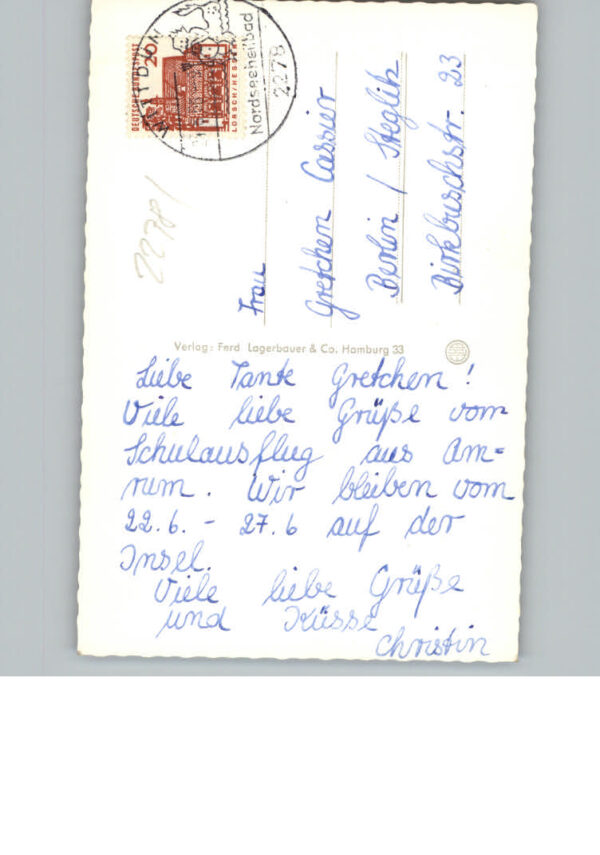 DEUTSCHE BUNDESPOST
20
LORSCH/HESSEN
WITTDÜN
Nordseeheilbad
2278
22781
Frau
Gretchen Cassier
Berlin / Steglitz
Birkbuschstr. 23
Verlag: Ferd. Lagerbauer & Co. Hamburg 33
Liebe Tante Gretchen!
Viele liebe Grüße vom
Schulausflug aus Am=
rum. Wir bleiben vom
22.6. - 27.6 auf der
Insel.
Viele liebe Grüße
und Küsse
Christin